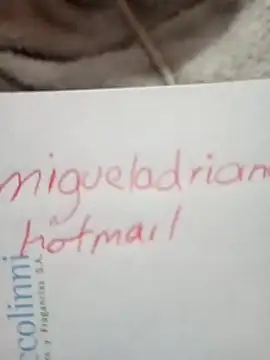 migueladrian
hotmail
ccolinni
y Fragancias S.A.